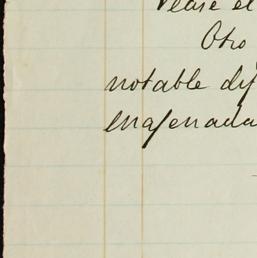 Véase el
Otro
notable dif
enagenada